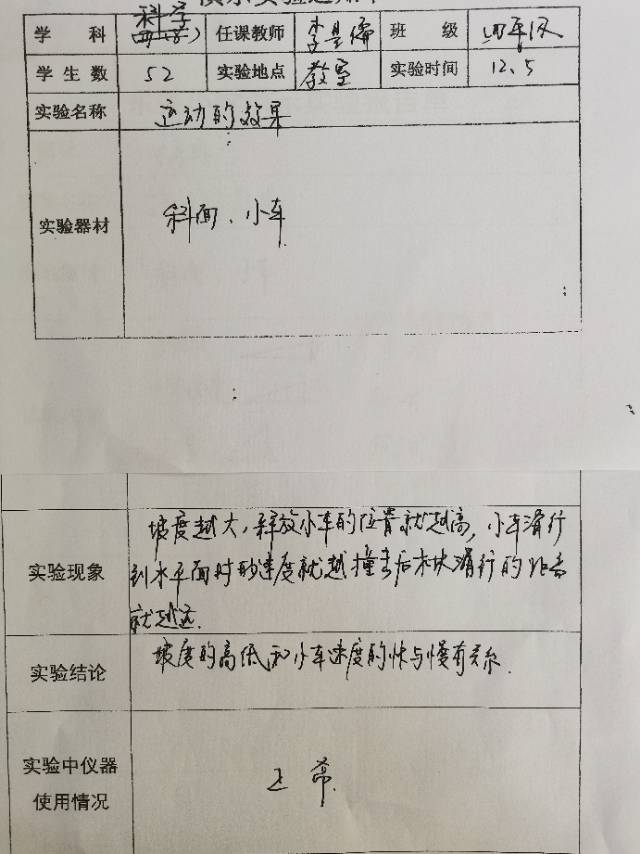 学 科 科学 任课教师 李 儒 班 级 四年级
学生数 52 实验地点 教室 实验时间 12.5
实验名称 运动的效果
实验器材 斜面、小车
坡度越大,释放小车的位置就越高,小车滑行
实验现象 到水平面时的速度就越撞击后木块滑行的距离
就越远.
实验结论 坡度的高低和小车速度的快与慢有关系.
实验中仪器
使用情况 正常.